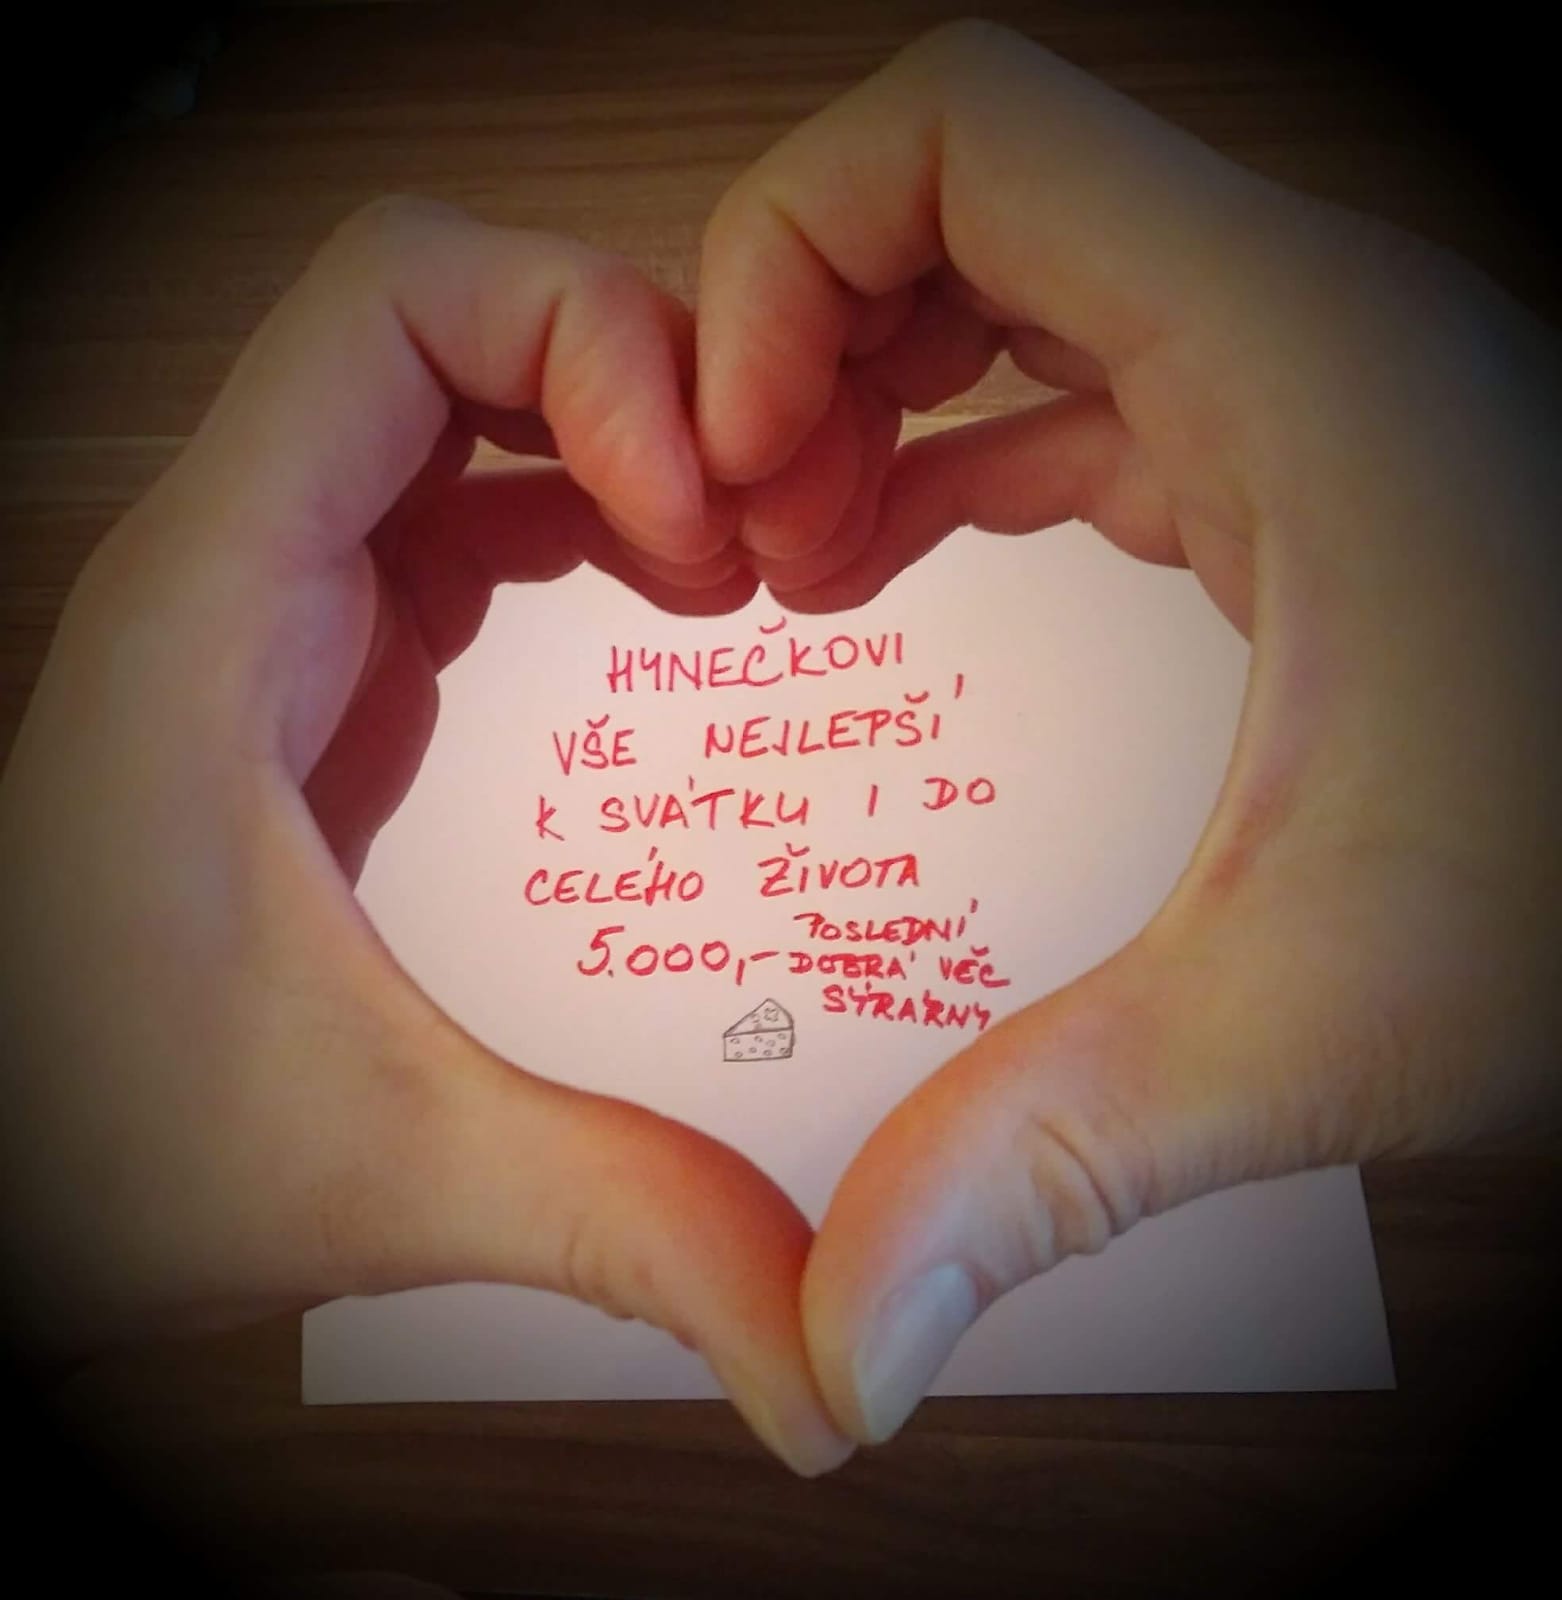 HYNEČKOVI
VŠE NEJLEPŠÍ
K SVÁTKU I DO
CELÉHO ŽIVOTA
5.000,-
POSLEDNÍ
DOBRÁ VĚC
SÝRÁRNY